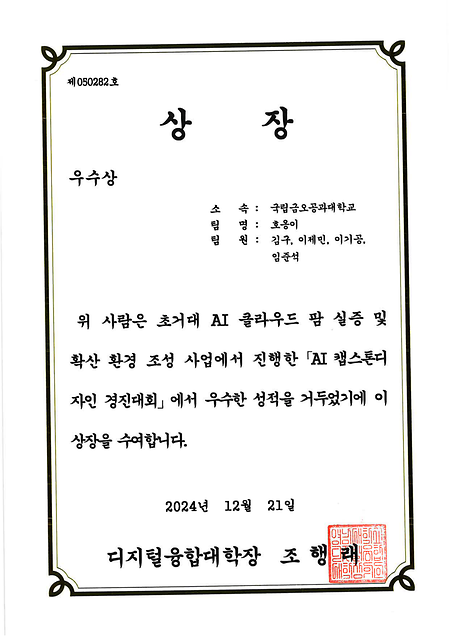 제050282호
상 장
우수상
소 속 : 국립금오공과대학교
팀 명 : 호옹이
팀 원 : 김구, 이제민, 이기공,
임준석
위 사람은 초거대 AI 클라우드 팜 실증 및
확산 환경 조성 사업에서 진행한 「AI 캡스톤디
자인 경진대회」에서 우수한 성적을 거두었기에 이
상장을 수여합니다.
2024년 12월 21일
디지털융합대학장 조 행 래